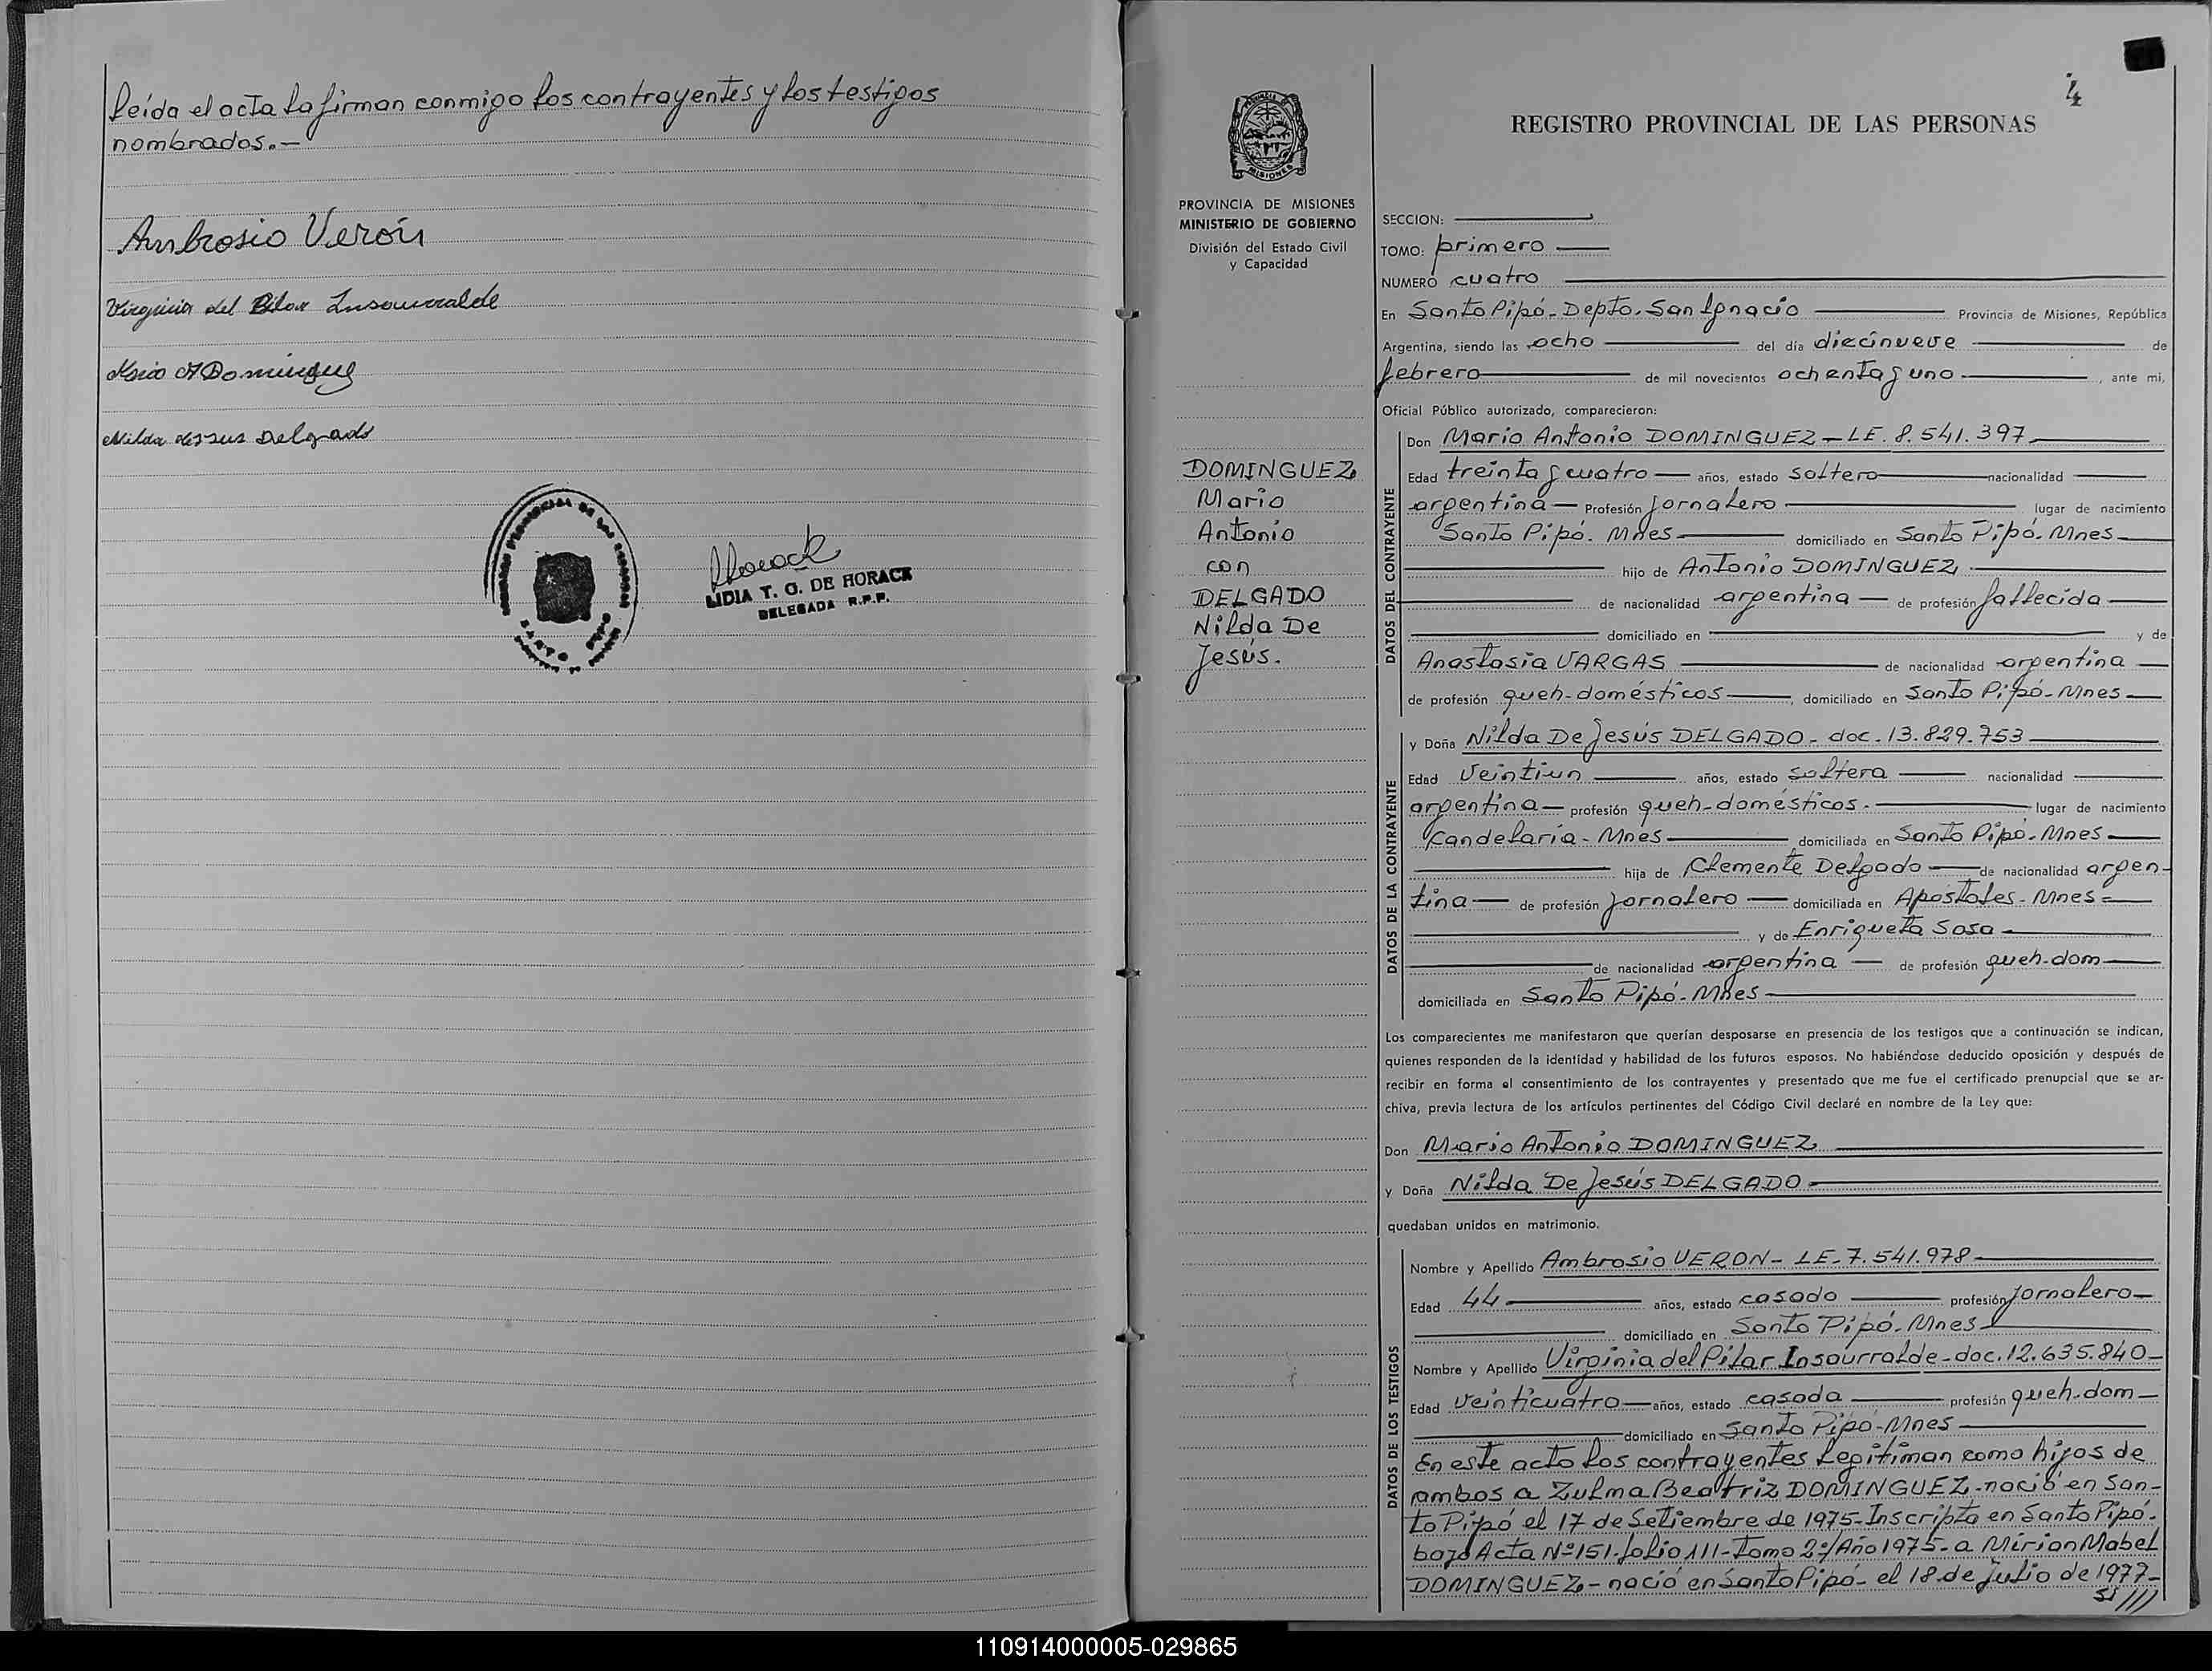 Leída el acta la firman conmigo los contrayentes y los testigos
nombrados.-
Ambrosio Verón
Virginia del Pilar Insaurralde
Mario A Dominguez
Nilda de Jesus Delgado
SANTO PIPO
LIDIA T. G. DE HORACK
DELEGADA R.P.P.
4
PROVINCIA DE MISIONES
MINISTERIO DE GOBIERNO
División del Estado Civil
y Capacidad
DOMINGUEZ
Mario
Antonio
con
DELGADO
Nilda De
Jesús.
REGISTRO PROVINCIAL DE LAS PERSONAS
SECCION:
TOMO: primero
NUMERO cuatro
En Santo Pipó-Depto. San Ignacio Provincia de Misiones, República
Argentina, siendo las ocho del día diecinueve de
febrero de mil novecientos ochenta y uno , ante mi,
Oficial Público autorizado, comparecieron:
DATOS DEL CONTRAYENTE
Don Mario Antonio DOMINGUEZ - LE. 8.541.397
Edad treinta y cuatro años, estado soltero nacionalidad
argentina Profesión jornalero lugar de nacimiento
Santo Pipó. Mnes domiciliado en Santo Pipó. Mnes
hijo de Antonio DOMINGUEZ
de nacionalidad argentina de profesión fallecida
domiciliado en y de
Anastasia VARGAS de nacionalidad argentina
de profesión queh-domésticos , domiciliado en Santo Pipó-Mnes
DATOS DE LA CONTRAYENTE
y Doña Nilda De Jesús DELGADO - doc. 13.829.753
Edad Veintiun años, estado soltera nacionalidad
argentina profesión queh-domésticos. lugar de nacimiento
Candelaria - Mnes domiciliada en Santo Pipó-Mnes
hija de Clemente Delgado de nacionalidad argen-
tina de profesión jornalero domiciliada en Apóstoles-Mnes
y de Enriqueta Sosa
de nacionalidad argentina de profesión queh-dom
domiciliada en Santo Pipó-Mnes
Los comparecientes me manifestaron que querían desposarse en presencia de los testigos que a continuación se indican,
quienes responden de la identidad y habilidad de los futuros esposos. No habiéndose deducido oposición y después de
recibir en forma el consentimiento de los contrayentes y presentado que me fue el certificado prenupcial que se ar-
chiva, previa lectura de los artículos pertinentes del Código Civil declaré en nombre de la Ley que:
Don Mario Antonio DOMINGUEZ
y Doña Nilda De Jesús DELGADO
quedaban unidos en matrimonio.
DATOS DE LOS TESTIGOS
Nombre y Apellido Ambrosio VERON - LE-7.541.978
Edad 44 años, estado casado profesión jornalero
domiciliado en Santo Pipó-Mnes
Nombre y Apellido Virginia del Pilar Insaurralde-doc.12.635.840
Edad Veinticuatro años, estado casada profesión queh.dom
domiciliado en Santo Pipó-Mnes
En este acto los contrayentes legitiman como hijos de
ambos a Zulma Beatriz DOMINGUEZ-nació en San-
to Pipó el 17 de Setiembre de 1975-Inscripta en Santo Pipó.
bajo Acta Nº151-folio 111-Tomo 2º/Año 1975-a Mirian Mabel
DOMINGUEZ-nació en Santo Pipó-el 18 de julio de 1977-
110914000005-029865